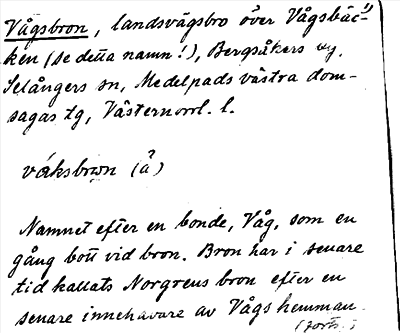 Vågsbron, landsvägsbro över Vågsbäc-
ken (se detta namn!), Bergsåkers by,
Selångers sn, Medelpads västra dom-
sagas tg, Västernorrl. l.
våksbron (å)
Namnet efter en bonde, Våg, som en
gång bott vid bron. Bron har i senare
tid kallats Norgrens bron efter en
senare innehavare av Vågs hemman.
(forts.)